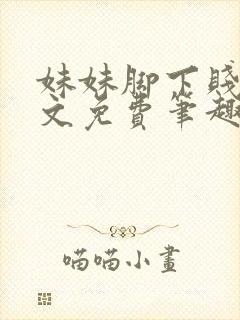 妹妹脚下贱
文免费笔趣
喵喵小画